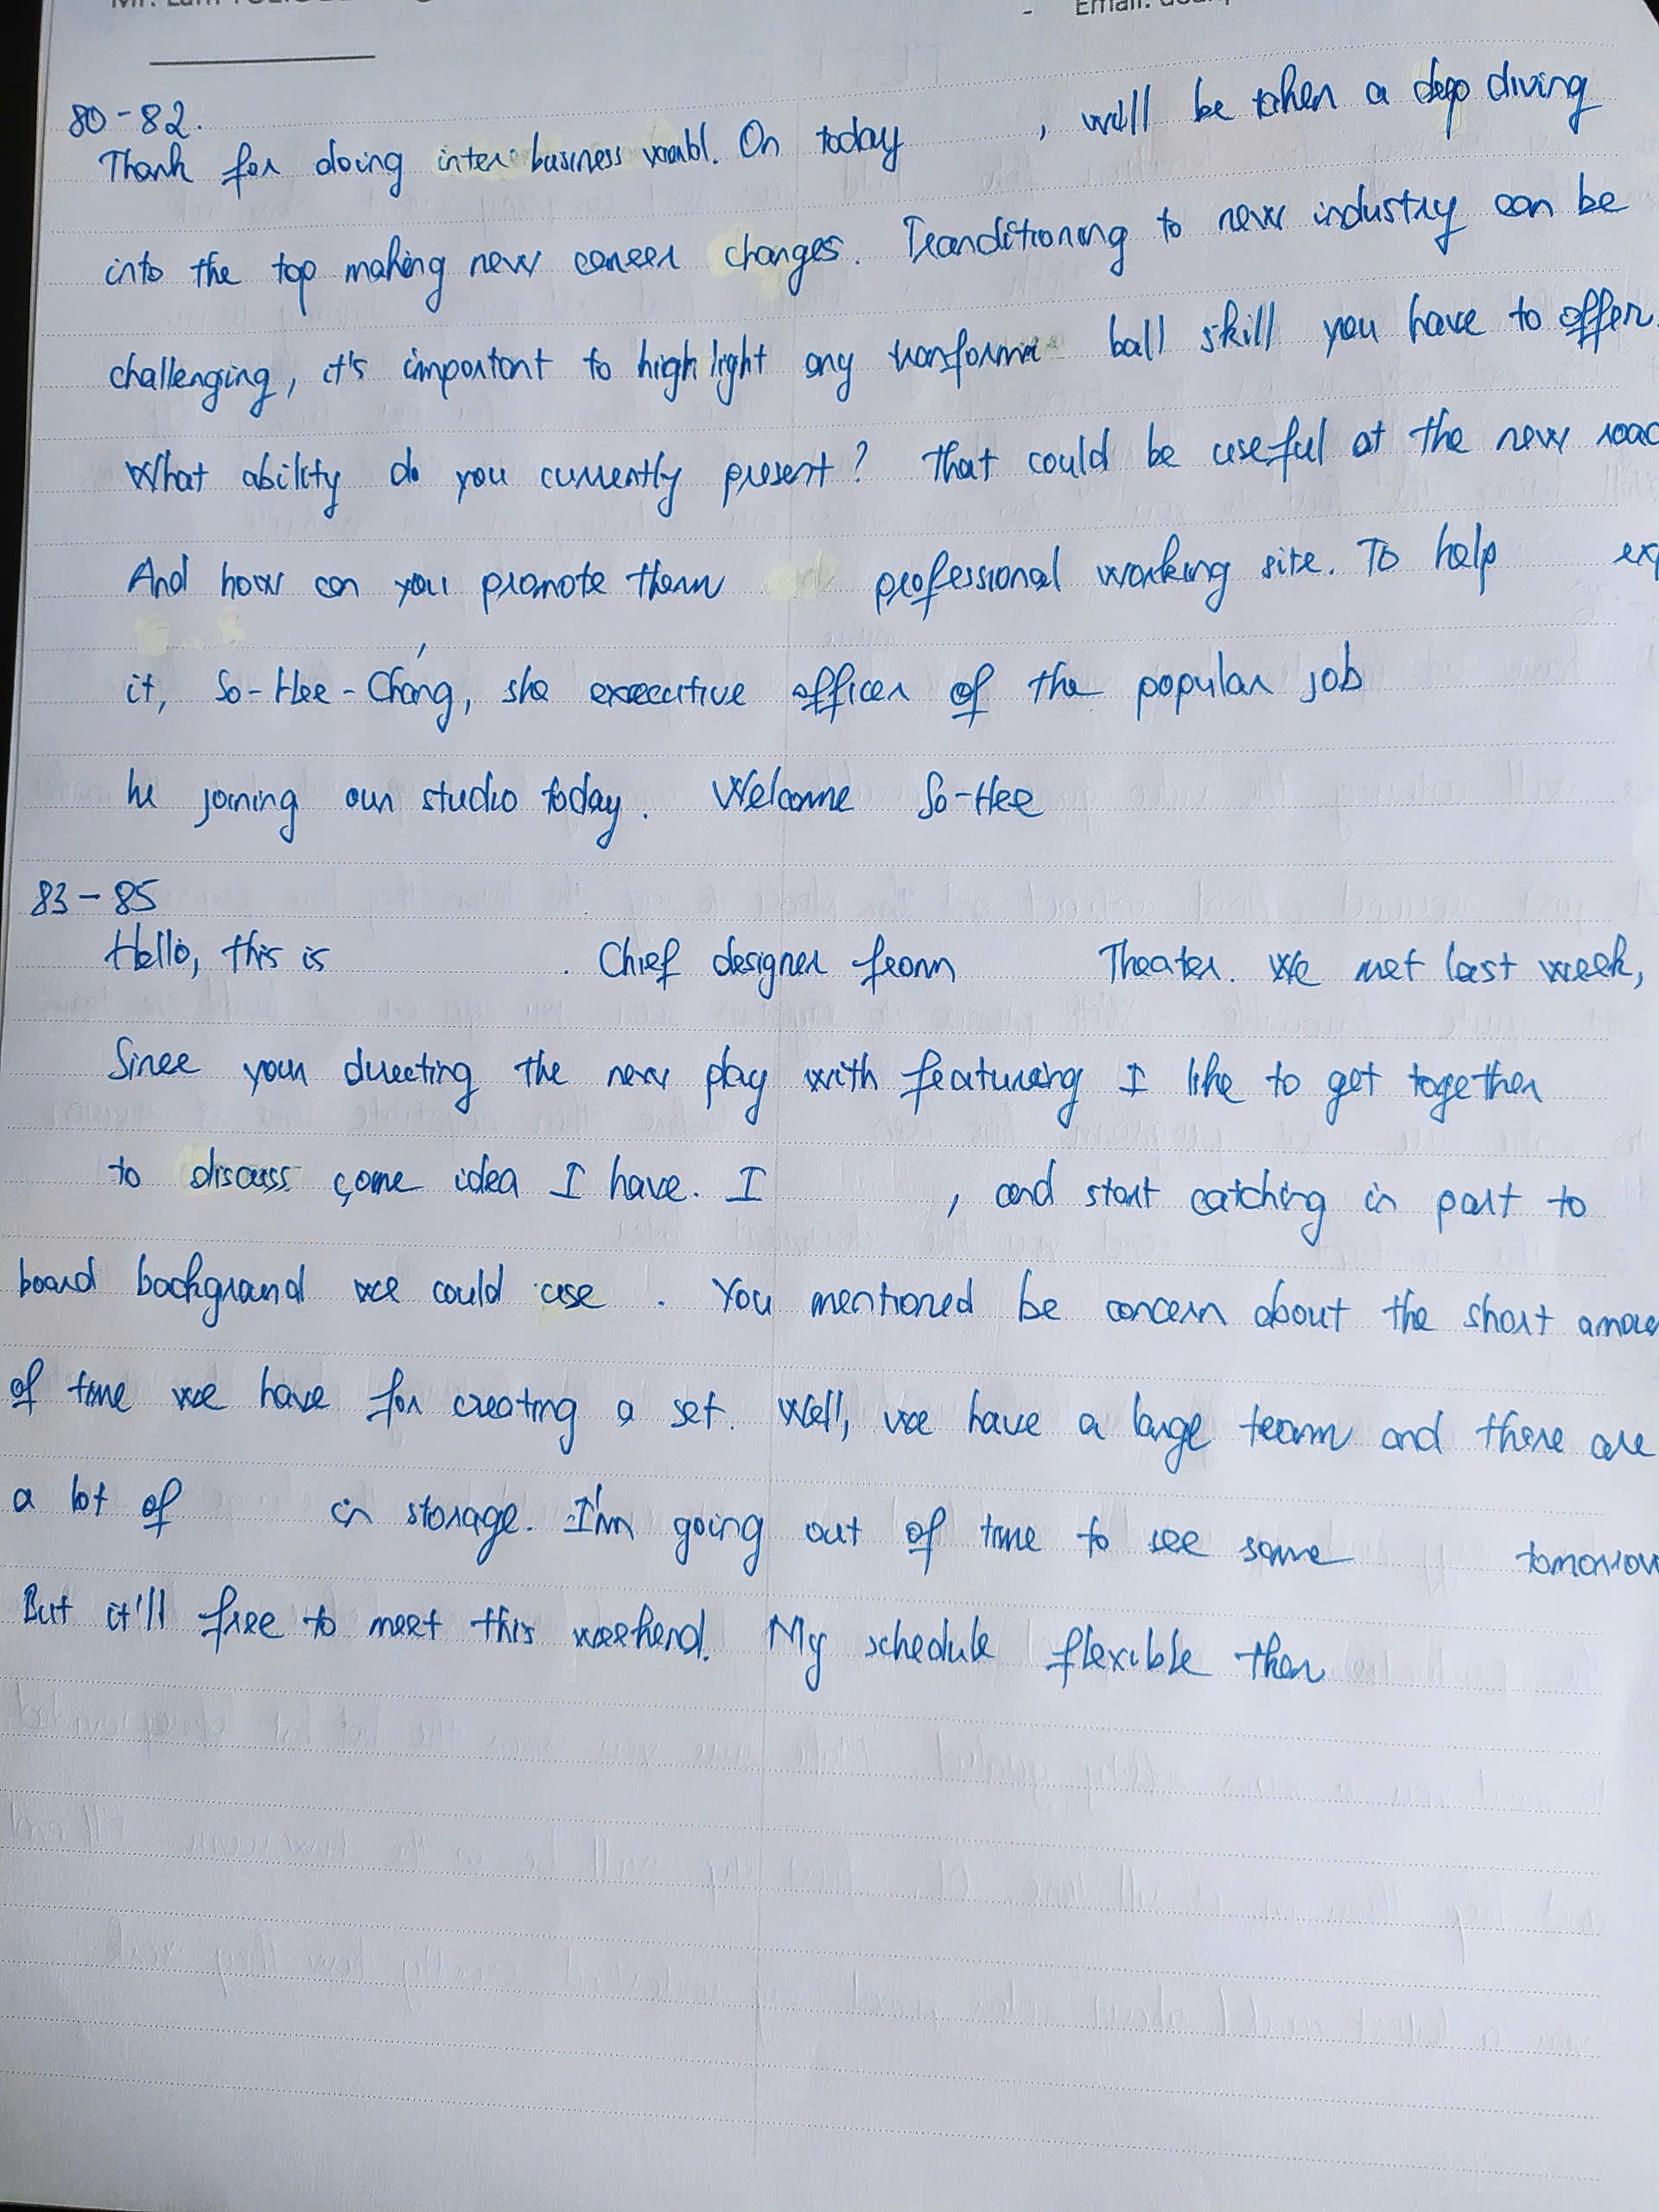 Email:
80-82.
Thank for doing inter business . On today , will be taken a deep diving
into the top making new career changes. Tranditioning to new industry can be
challenging, it's important to high light any ball skill you have to offer.
What ability do you currently present? That could be useful at the new
And how can you promote them professional working site. To help
it, So-Hee-Cháng, she executive officer of the popular job
he joining our studio today. Welcome So-Hee
83-85
Hello, this is . Chief designer from Theater. We met last week,
Since your directing the new play with featuring I like to get together
to discuss come idea I have. I , and start catching in part to
board background we could use . You mentioned be concern about the short
of time we have for creating a set. Well, we have a large team and there are
a lot of in storage. I'm going out of time to see some
But it'll free to meet this weekend. My schedule flexible then